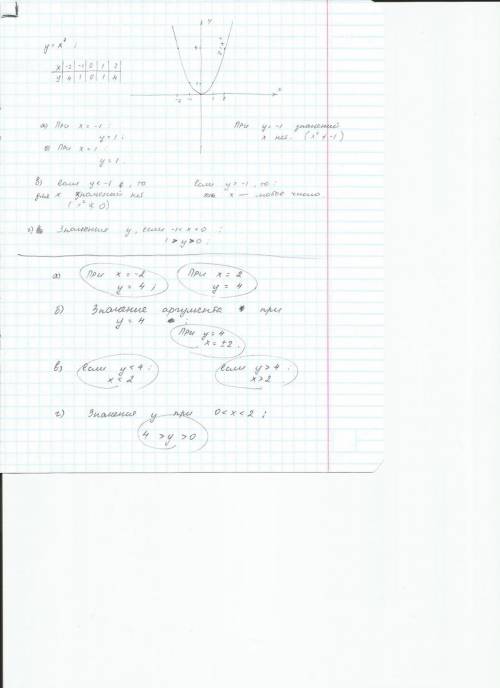 y = x² ;
y
x | -2 | -1 | 0 | 1 | 2
y | 4 | 1 | 0 | 1 | 4
y = x²
x
-2 -1 1 2
а) При x = -1 :
y = 1 ;
б) При x = 1 :
y = 1.
При y = -1 значений
x нет. (x² ≠ -1)
в) Если y < -1, то
для x значений нет
(x² ≮ 0)
Если y > -1, то :
x — любое число.
г) Значения y, если -1 < x < 0 :
1 > y > 0 ;
а) При x = -2
y = 4 ;
При x = 2
y = 4
б) Значение аргумента при
y = 4 ;
При y = 4
x = ±2.
в) Если y < 4 ;
x < 2
Если y > 4 ;
x > 2
г) Значения y при 0 < x < 2 ;
4 > y > 0